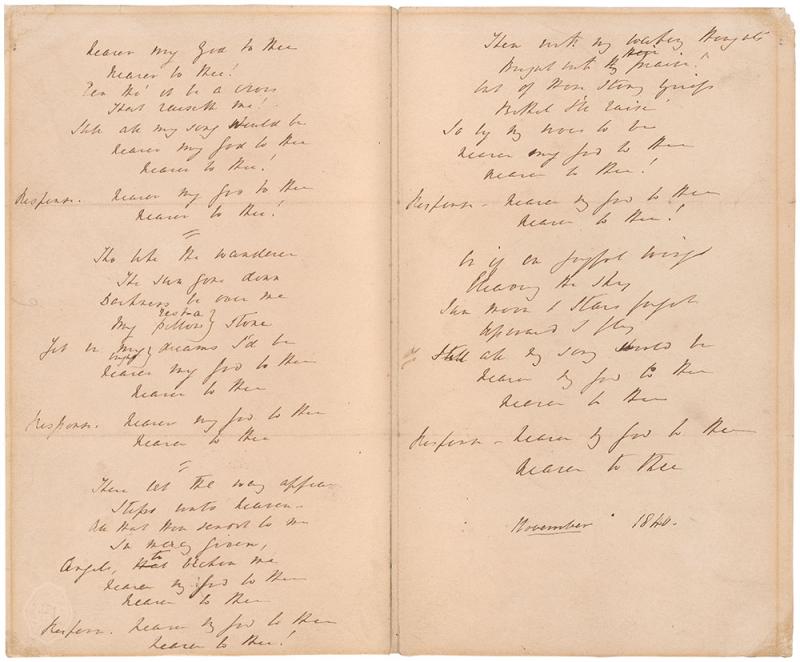 Nearer my God to thee
Nearer to thee!
E'en tho' it be a cross
That raiseth me!
Still all my song would be
Nearer my God to thee
Nearer to thee!
Response. Nearer my God to thee
Nearer to thee!
Tho like the wanderer
The sun gone down
Darkness be over me
My rest a stone
pillow
Yet in my dreams I'd be
bright
Nearer my God to thee
Nearer to thee
Response. Nearer my God to thee
Nearer to thee
There let the way appear
Steps unto heaven -
All that thou sendst to me
In mercy given,
Angels, to beckon me
Nearer my God to thee
Nearer to thee
Response. Nearer my God to thee
Nearer to thee!
Then with my waking thoughts
Bright with thy praise!
Out of those stony griefs
Bethel I'll raise
So by my woes to be
Nearer my God to thee
Nearer to thee!
Response - Nearer my God to thee
Nearer to thee!
Or if on joyful wing
Cleaving the sky
Sun moon & Stars forgot
Upward I fly
Still all my song would be
Nearer my God to thee
Nearer to thee
Response - Nearer my God to thee
Nearer to thee
November 1840.